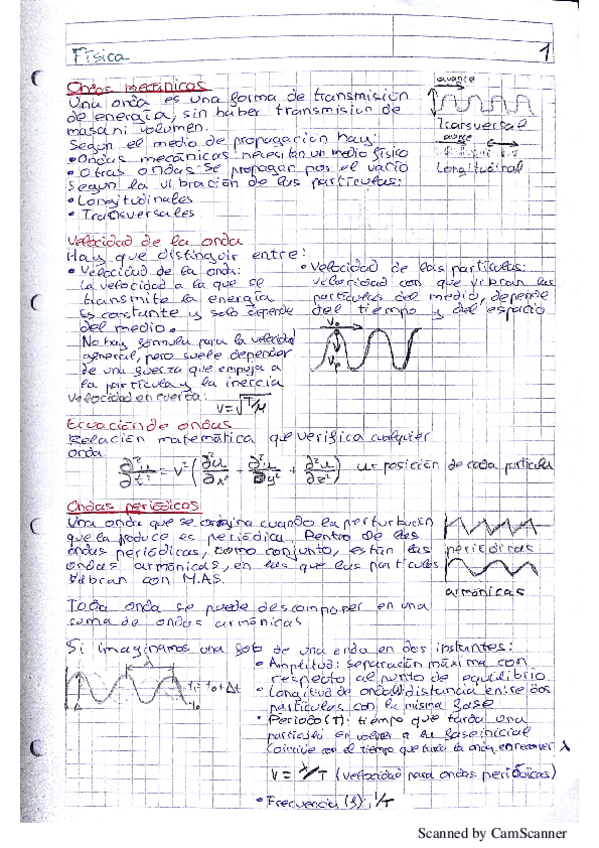 Física
1
Ondas mecánicas
Una onda es una forma de transmisión
de energía, sin haber transmisión de
masa ni volumen.
Según el medio de propagación hay:
• Ondas mecánicas: necesitan un medio físico
• Otras ondas se propagar por el vacío
Según la vibración de las partículas:
• Longitudinales
• Transversales
avance
Transversal
avance
Longitudinal
Velocidad de la onda
Hay que distinguir entre:
• Velocidad de la onda:
la velocidad a la que se
transmite la energía
Es constante y solo depende
del medio.
No hay fórmula para la velocidad
general, pero suele depender
de una fuerza que empuja a
la partícula y la inercia
Velocidad en cuerda:
V=√T/μ
• Velocidad de las partículas:
velocidad con que vibran las
partículas del medio, depende
del tiempo y del espacio
Vo
Vp
Ecuación de ondas
Relación matemática que verifica cualquier
onda
∂²u/∂t² = v² (∂²u/∂x² + ∂²u/∂y² + ∂²u/∂z²) u = posición de cada partícula
Ondas periódicas
Una onda que se origina cuando la perturbación
que la produce es periódica. Dentro de las
ondas periódicas, como conjunto, están las
ondas armónicas, en las que las partículas
vibran con M.A.S.
periódicas
armónicas
Toda onda se puede descomponer en una
suma de ondas armónicas
Si imaginamos una foto de una onda en dos instantes:
t₁=t₀+Δt
t₀
• Amplitud: separación máxima con
respecto al punto de equilibrio
• Longitud de onda (λ) distancia entre dos
partículas con la misma fase
• Período (T): tiempo que tarda una
partícula en volver a su fase inicial
Coincide con el tiempo que tarda la onda en recorrer λ
V = λ/T (velocidad para ondas periódicas)
• Frecuencia (f), 1/T
Scanned by CamScanner